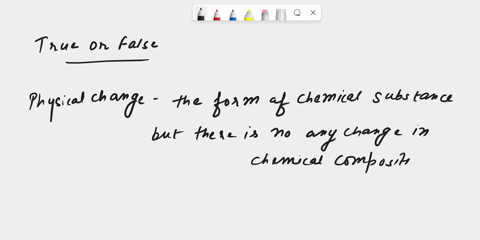 True or False
Physical change - the form of chemical substance
but there is no any change in
chemical composit